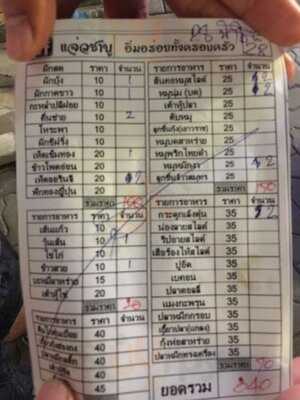 แจ่วซาบู อิ่มอร่อยทั้งครอบครัว
ผักสด ราคา จำนวน
ผักบุ้ง 10
ผักกาดขาว 10
กะหล่ำปลีฝอย 10
ตื้นช่าย 10 2
โหระพา 10
ผักชีฝรั่ง 10
เห็ดเข็มทอง 20 1
ข้าวโพดอ่อน 20
เห็ดออรินจิ 20 2
ฟักทองญี่ปุ่น 20
รวมราคา 100
รายการอาหาร ราคา จำนวน
เส้นแก้ว 10
วุ้นเส้น 10 1
ไข่ไก่ 10
ข้าวสวย 10 1
บะหมี่มาหร่าย 15
เต้าหู้ไข่ 20
รวมราคา
รายการอาหาร ราคา จำนวน
40
40
40
40
45
รายการอาหาร ราคา จำนวน
สันคอหมูสไลด์ 25 2
หมูนุ่ม (บด) 25 2
เต้าหู้ปลา 25
ตับหมู 25
ลูกชิ้นกุ้ง(เยาวราช) 25
หมูบดสาหร่าย 25
หมูพริกไทยดำ 25
หมูหมักงา 25 2
ลูกชิ้นลัวสมุทร 25
รวมราคา 150
กระดูกเล้งตุ๋น 35 2
น่องลายสไลด์ 35
ริบอายสไลด์ 35
เสือร้องไห้สไลด์ 35
ปูอัด 35
เบคอน 35
ปลาดอลลี่ 35
แมงกะพรุน 35
ปลาหมึกกรอบ 35
35
กุ้งห่อสาหร่าย 35
ปลาหมึกทรงเครื่อง 35
รวมราคา 70
ยอดรวม 340